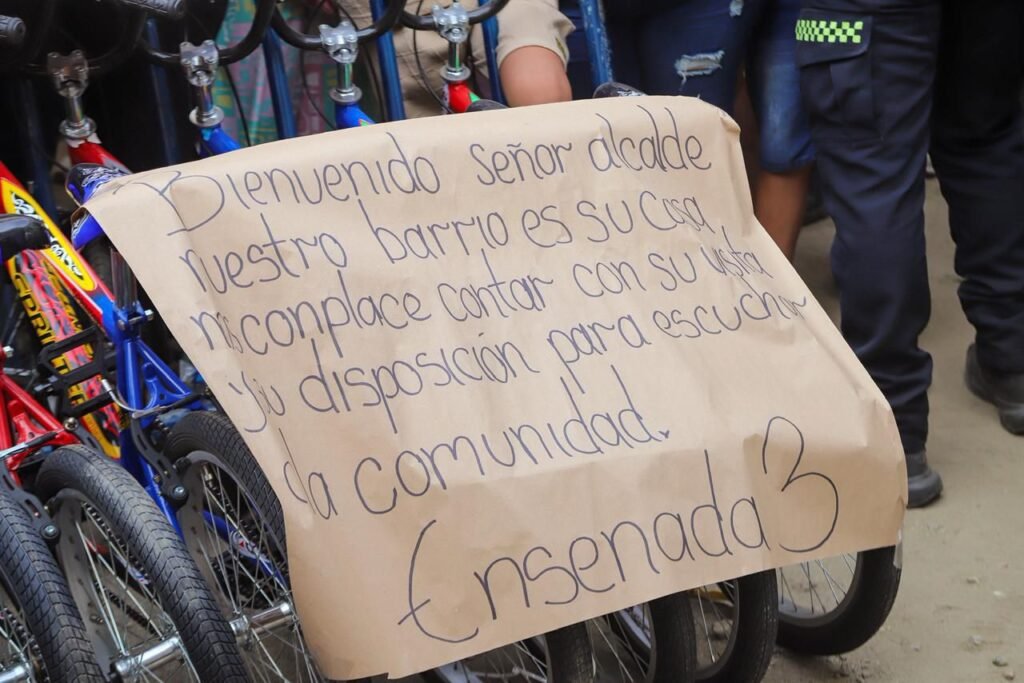 Bienvenido señor alcalde
nuestro barrio es su casa
nos conplace contar con su visita
y su disposición para escuchar
la comunidad.
Ensenada 3